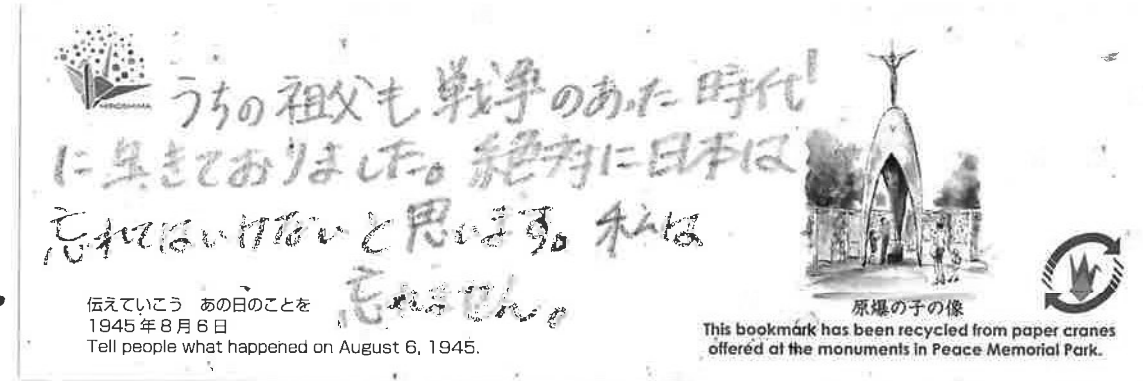 HIROSHIMA
うちの祖父も戦争のあった時代
に生きておりました。絶対に日本は
忘れてはいけないと思います。私は
忘れません。
伝えていこう あの日のことを
1945年8月6日
Tell people what happened on August 6, 1945.
原爆の子の像
This bookmark has been recycled from paper cranes
offered at the monuments in Peace Memorial Park.